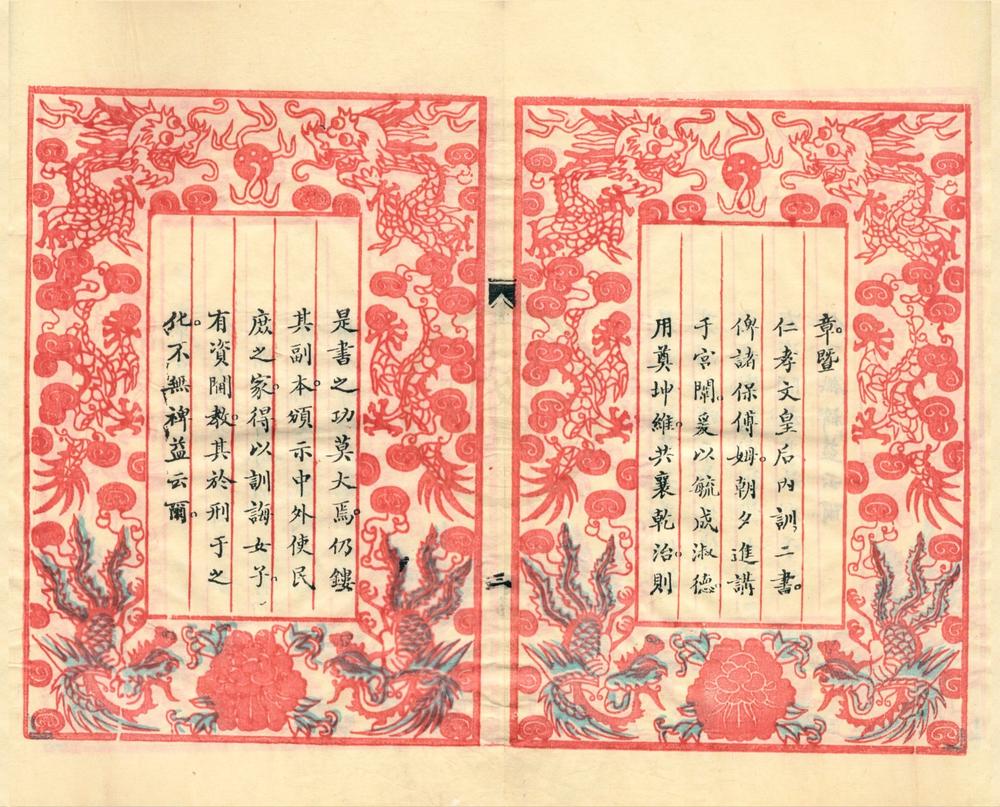 章。暨
仁孝文皇后內訓、二書。
俾諸保傅姆。朝夕進講
于宮闈。爰以毓成淑德。
用奠坤維。共襄乾治。則
三
是書之功莫大焉。仍鏤
其副本。頒示中外。使民
庶之家。得以訓誨女子。
有資閫教。其於刑于之
化。不無裨益云爾。